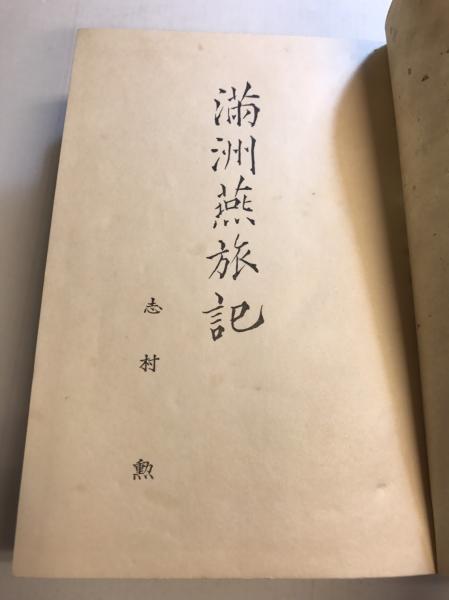 滿洲燕旅記
志村勲